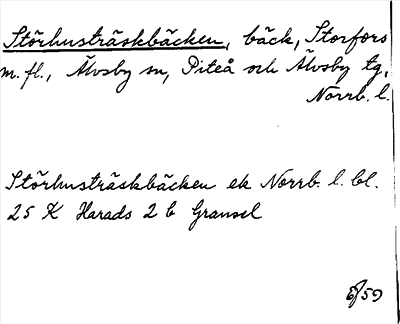 Störhusträskbäcken, bäck, Storfors
m. fl., Älvsby sn, Piteå och Älvsby tg,
Norrb. l.
Störhusträskbäcken ek Norrb. l. bl.
25 K Harads 2 b Gransel
E/59